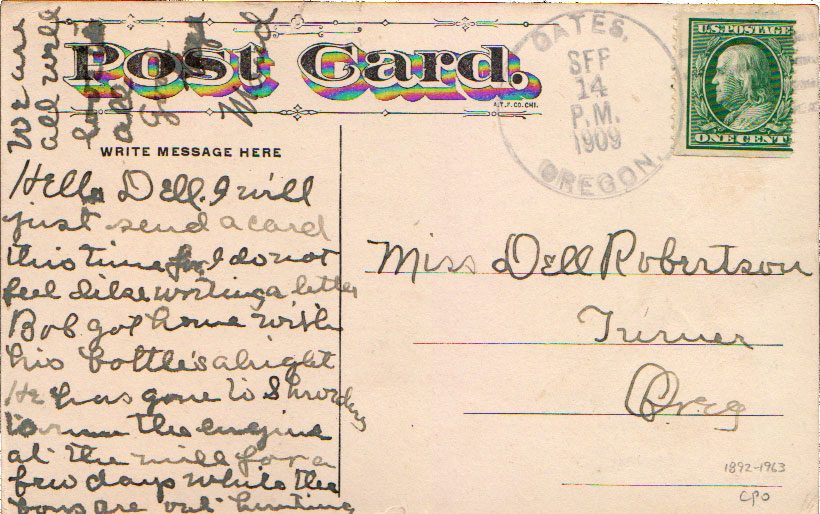 Post Card.
A.T.F. CO. CHI.
WRITE MESSAGE HERE
GATES,
SEP
14
P.M.
1909
OREGON.
U.S. POSTAGE
ONE CENT
Hello Dell. I will
just send a card
this time for I do not
feel like writing a letter
Bob got home with
his bottle's alright
He has gone to Shroders
to run the engine
at the mill for a
few days while the
boys are out hunting
We are
all well
Miss Dell Robertson
Turner
Oreg
1892-1963
CPO